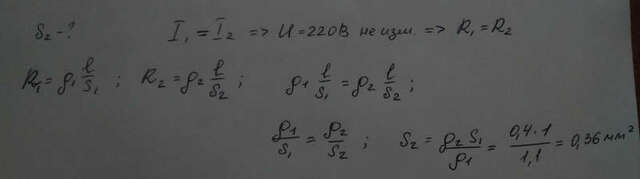 S₂ - ? I₁ = I₂ => U = 220В не изм. => R₁ = R₂
R₁ = ρ₁ l/S₁ ; R₂ = ρ₂ l/S₂ ; ρ₁ l/S₁ = ρ₂ l/S₂ ;
ρ₁/S₁ = ρ₂/S₂ ; S₂ = ρ₂ S₁/ρ₁ = 0,4·1/1,1 = 0,36 мм²